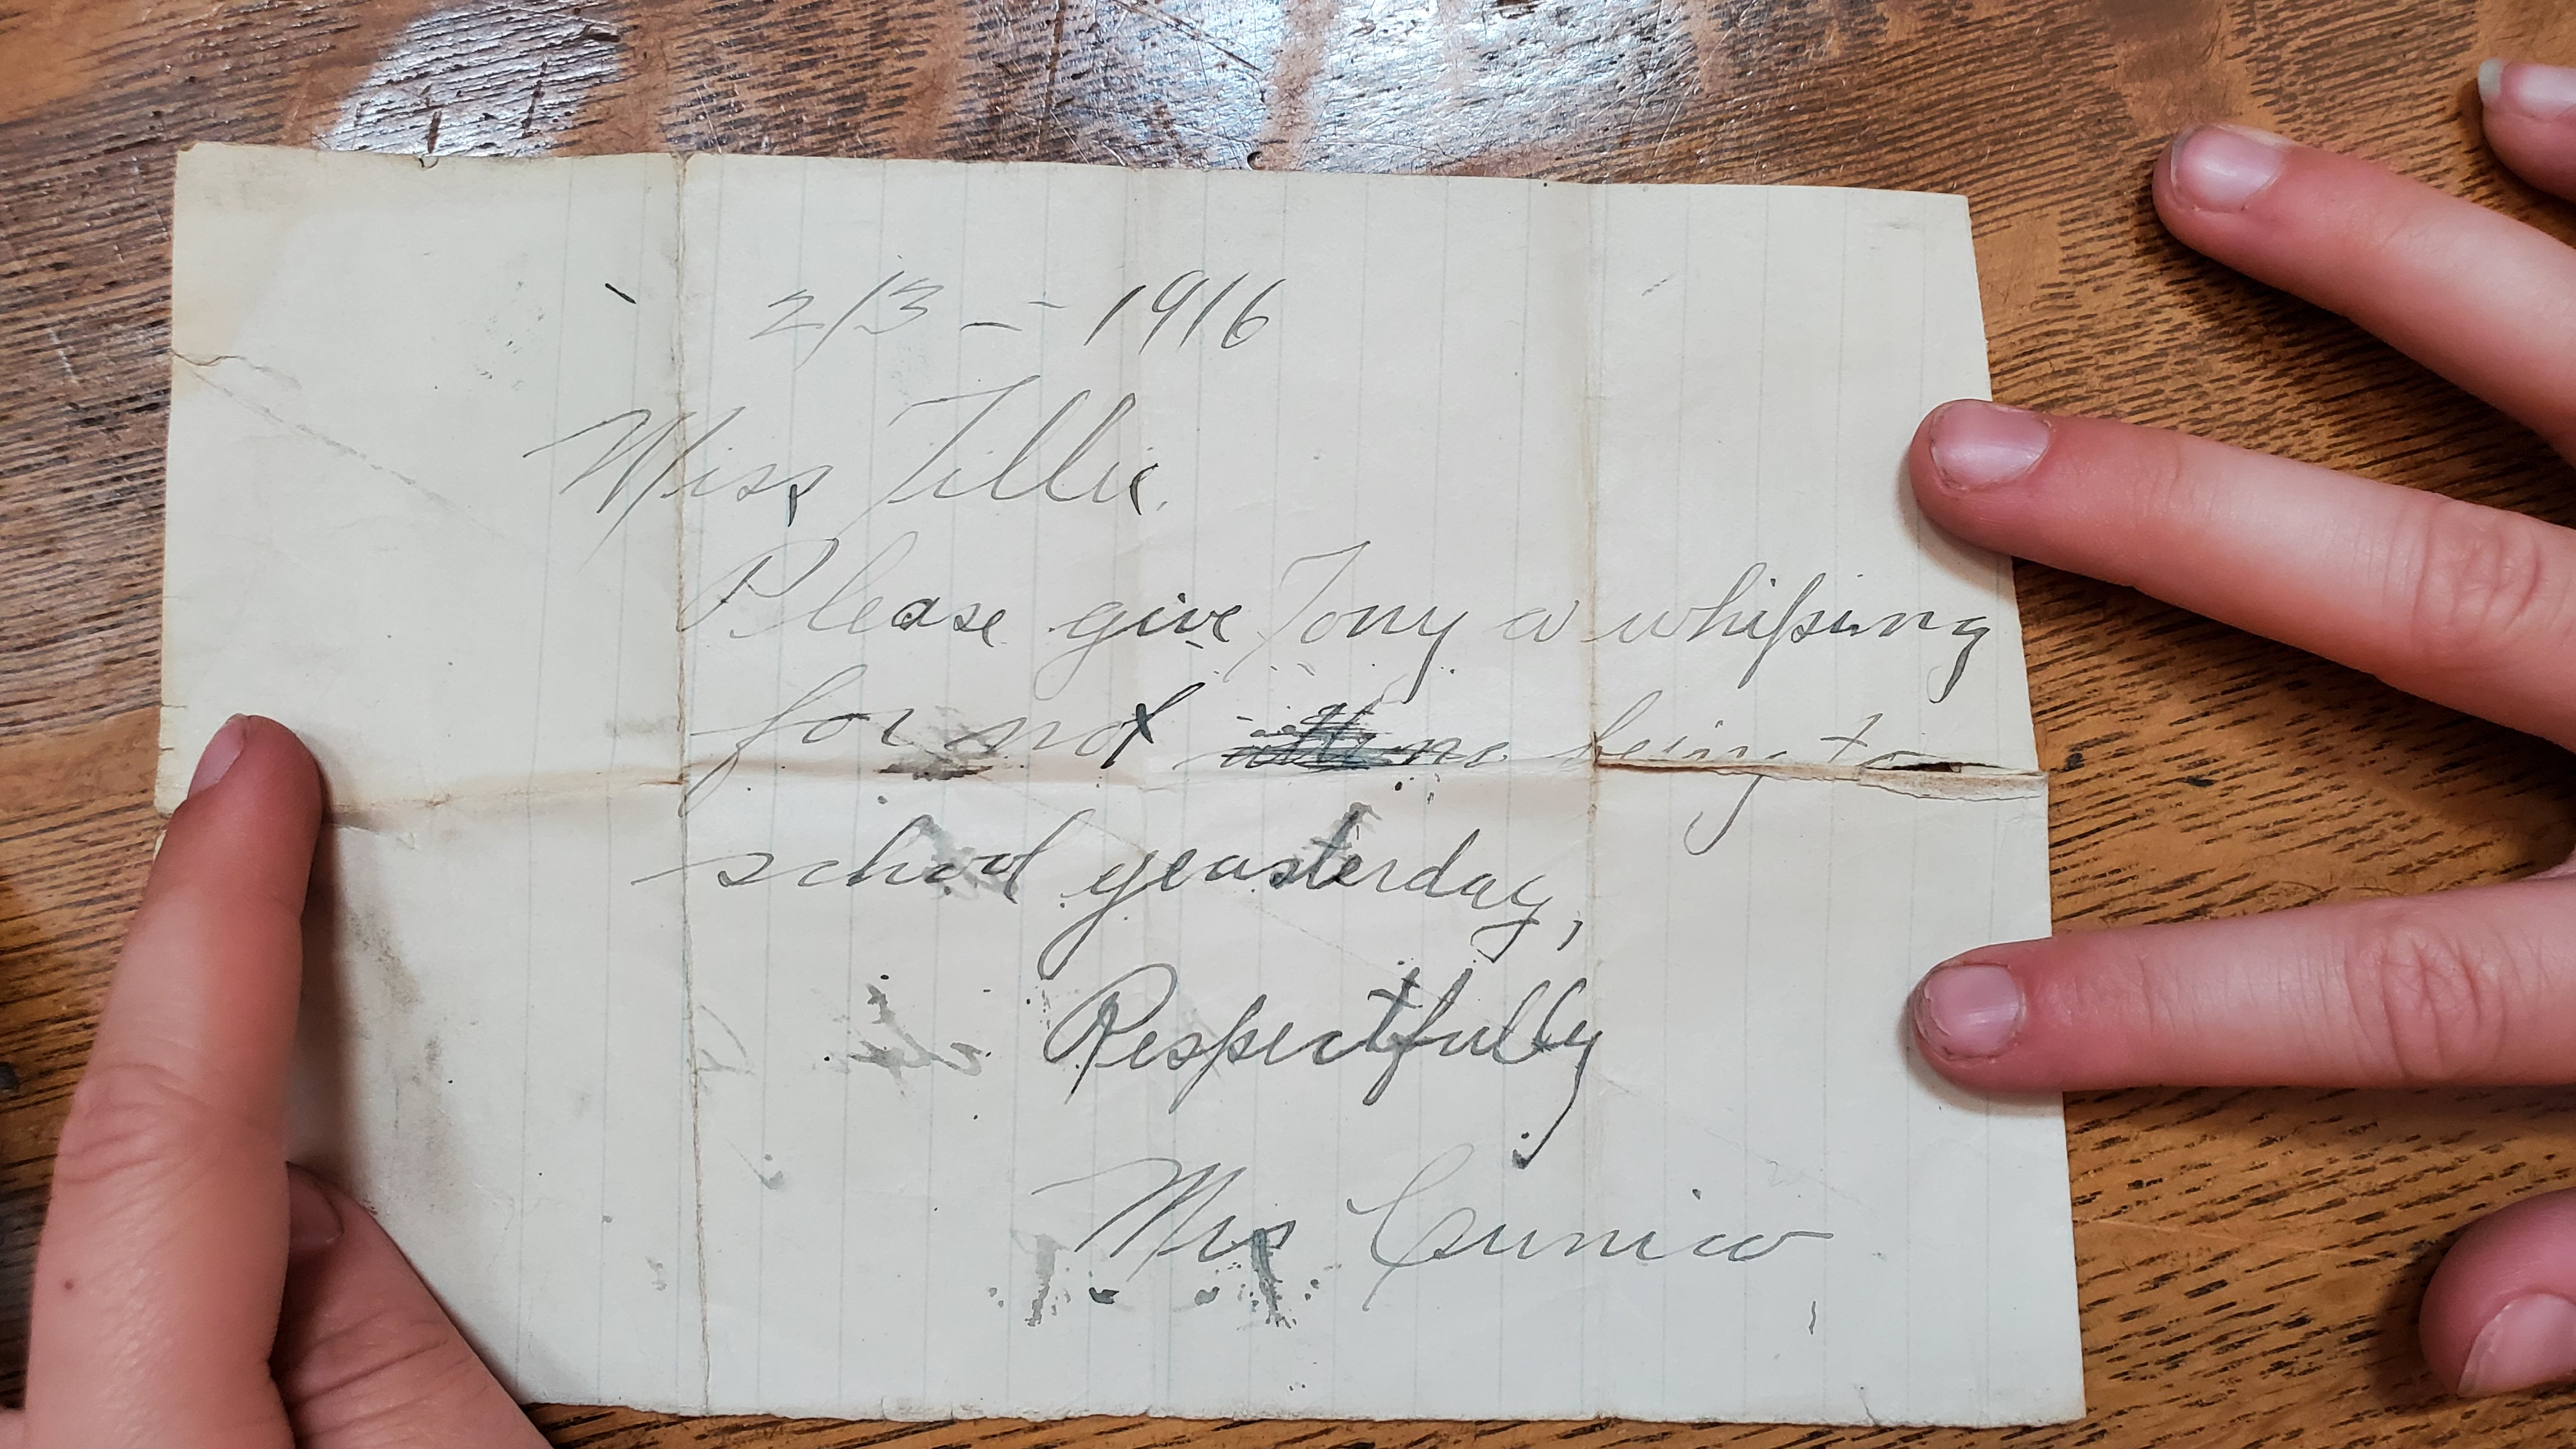 2/3 - = 1916
Miss Tillie.
Please give Tony a whiping
for not being to
school yeasterday,
Respectfully
Mrs Cunico